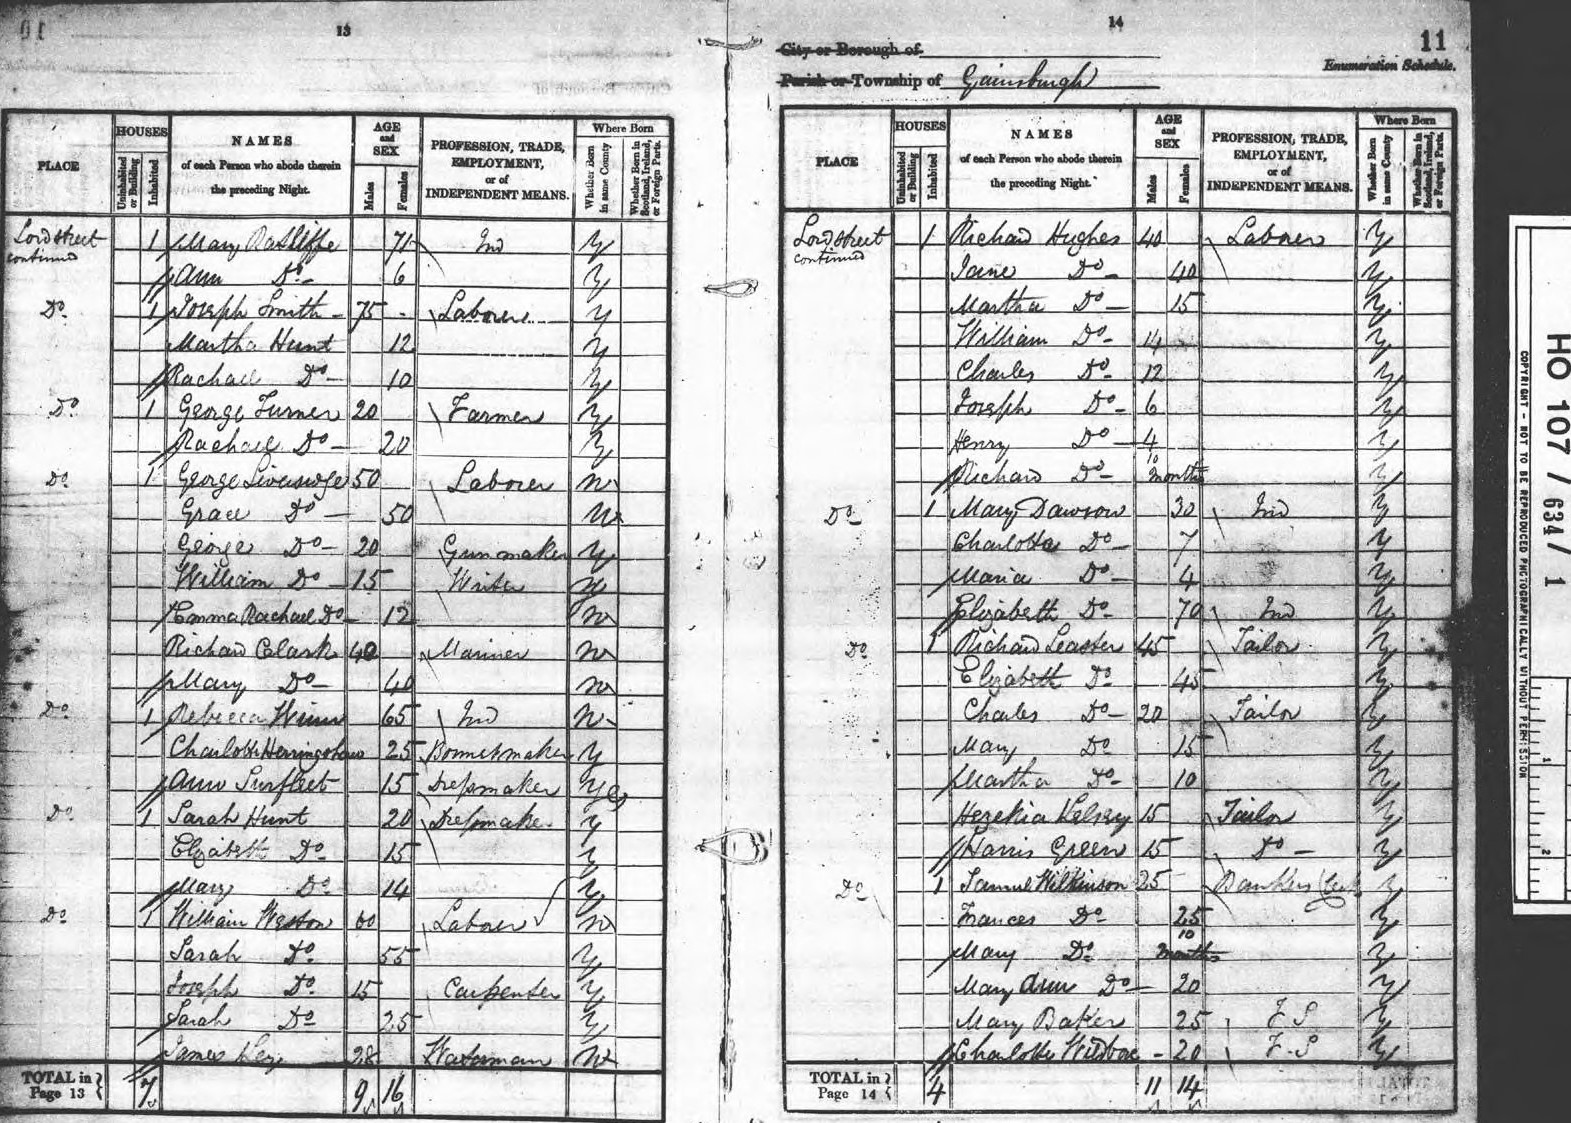 13
HOUSES
NAMES
AGE and SEX
PROFESSION, TRADE, EMPLOYMENT, or of INDEPENDENT MEANS.
Where Born
PLACE
Uninhabited or Building
Inhabited
of each Person who abode therein the preceding Night.
Males
Females
Whether Born in same County
Whether Born in Scotland, Ireland, or Foreign Parts.
Lord street continued 1 Mary Ratliffe 71 Ind Y
Ann Do 6 Y
Do 1 Joseph Smith 75 Laborer Y
Martha Hunt 12 Y
Rachael Do 10 Y
Do 1 George Turner 20 Farmer Y
Rachael Do 20 Y
Do 1 George Liversidge 50 Laborer N
Grace Do 50 N
George Do 20 Gunmaker Y
William Do 15 Writer
Emma Rachael Do 12 N
Richard Clark 40 Mariner N
Mary Do 40 N
Do 1 Rebecca Winn 65 Ind N
Charlotte 25 Bonnetmaker Y
Ann Surfleet 15 Dressmaker Yes
Do 1 Sarah Hunt 20 Dressmaker Y
Elizabeth Do 15 Y
Mary Do 14 Y
Do 1 William Weston 60 Laborer N
Sarah Do 55 Y
Joseph Do 15 Carpenter Y
Sarah Do 25 Y
James Key 28 Waterman N
TOTAL in Page 13 7 9 16
14
11
City or Borough of
Enumeration Schedule.
Parish or Township of Gainsburgh
HOUSES
NAMES
AGE and SEX
PROFESSION, TRADE, EMPLOYMENT, or of INDEPENDENT MEANS.
Where Born
PLACE
Uninhabited or Building
Inhabited
of each Person who abode therein the preceding Night.
Males
Females
Whether Born in same County
Whether Born in Scotland, Ireland, or Foreign Parts.
Lord street continued 1 Richard Hughes 40 Laborer Y
Jane Do 40 Y
Martha Do 15 Y
William Do 14 Y
Charles Do 12 Y
Joseph Do 6 Y
Henry Do 4 Y
Richard Do 10 months Y
Do 1 Mary Dawson 30 Ind Y
Charlotte Do 7 Y
Maria Do 4 Y
Elizabeth Do 70 Ind Y
Do 1 Richard Leaster 45 Tailor Y
Elizabeth Do 45 Y
Charles Do 20 Tailor Y
Mary Do 15 Y
Martha Do 10 Y
Hezekia Kelsey 15 Tailor Y
Harris Green 15 Do Y
Do 1 Samuel Wilkinson 25 Bankers Clerk Y
Frances Do 25 Y
Mary Do 10 months Y
Mary Ann Do 20 Y
Mary Baker 25 F S Y
Charlotte 20 F S Y
TOTAL in Page 14 4 11 14
HO 107 / 634 / 1
COPYRIGHT - NOT TO BE REPRODUCED PHOTOGRAPHICALLY WITHOUT PERMISSION
1
2